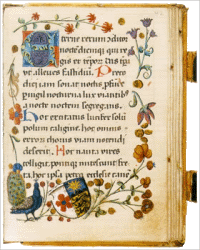 terne rerum conditor
noctē diemq; qui re
gis et tēpor das tēpo
ra ut alleves fastidiū. Preco
diei iam sonat noctis pfūde
pvigil nocturna lux viantib9
a nocte noctem segregans.
Hoc excitatus lucifer solvit
polum caligine hoc omnis
errorū chorus viam nocēdi
deserit. Hoc nauta vires
colligit pontiq; mitescunt fre
ta, hoc ipsa petra ecclesie canē